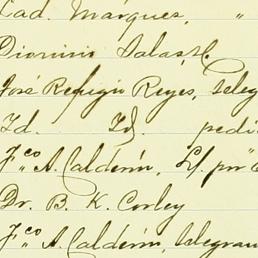 Cad. Marques, "
Dionisio Salas, H.
José Refugio Reyes, teleg
Id. Id. pedi
F,co A. Calderón, Lf. por
Dr. B. K. Corley
F,co A. Calderón, telegram